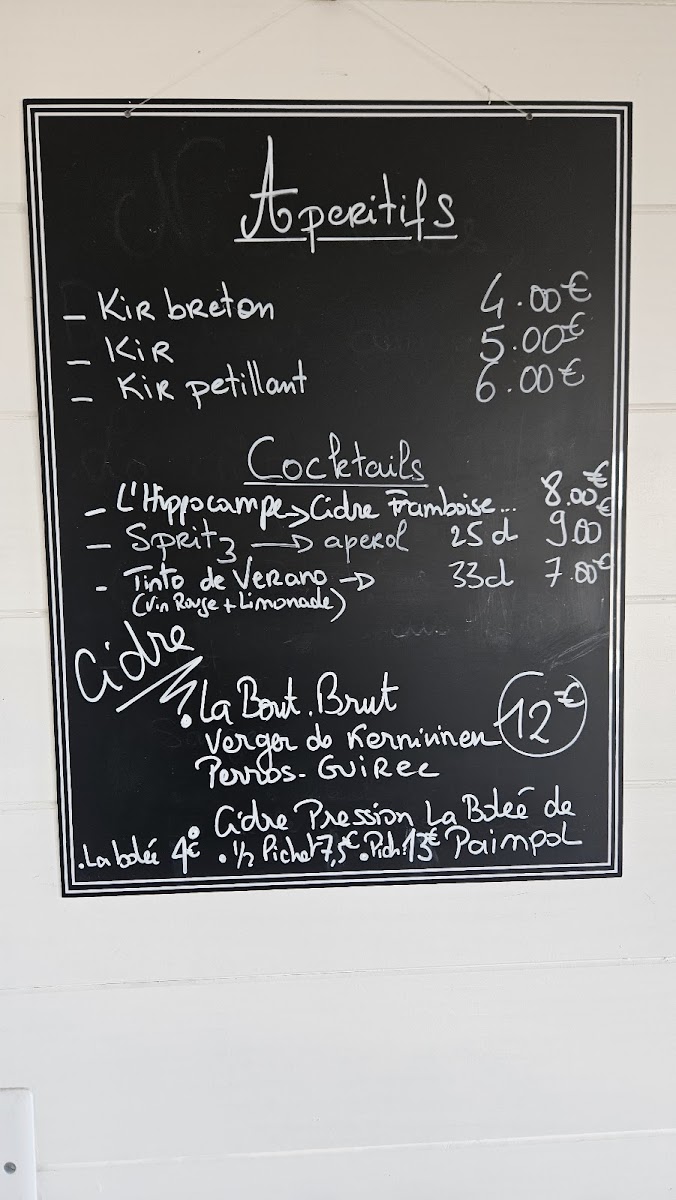 Aperitifs
- Kir breton 4.00€
- Kir 5.00€
- Kir petillant 6.00€
Cocktails
- L'Hippocampe → Cidre Framboise... 8.00€
- Spritz → aperol 25cl 9.00€
- Tinto de Verano → 33cl 7.00€
(Vin Rouge + Limonade)
Cidre
. La Bout. Brut 12€
Verger de Kernivinen
Perros-Guirec
° Cidre Pression La Boleé de
Paimpol
. La bolée 4€ . 1/2 Pichet 7,5€ . Pich: 13€